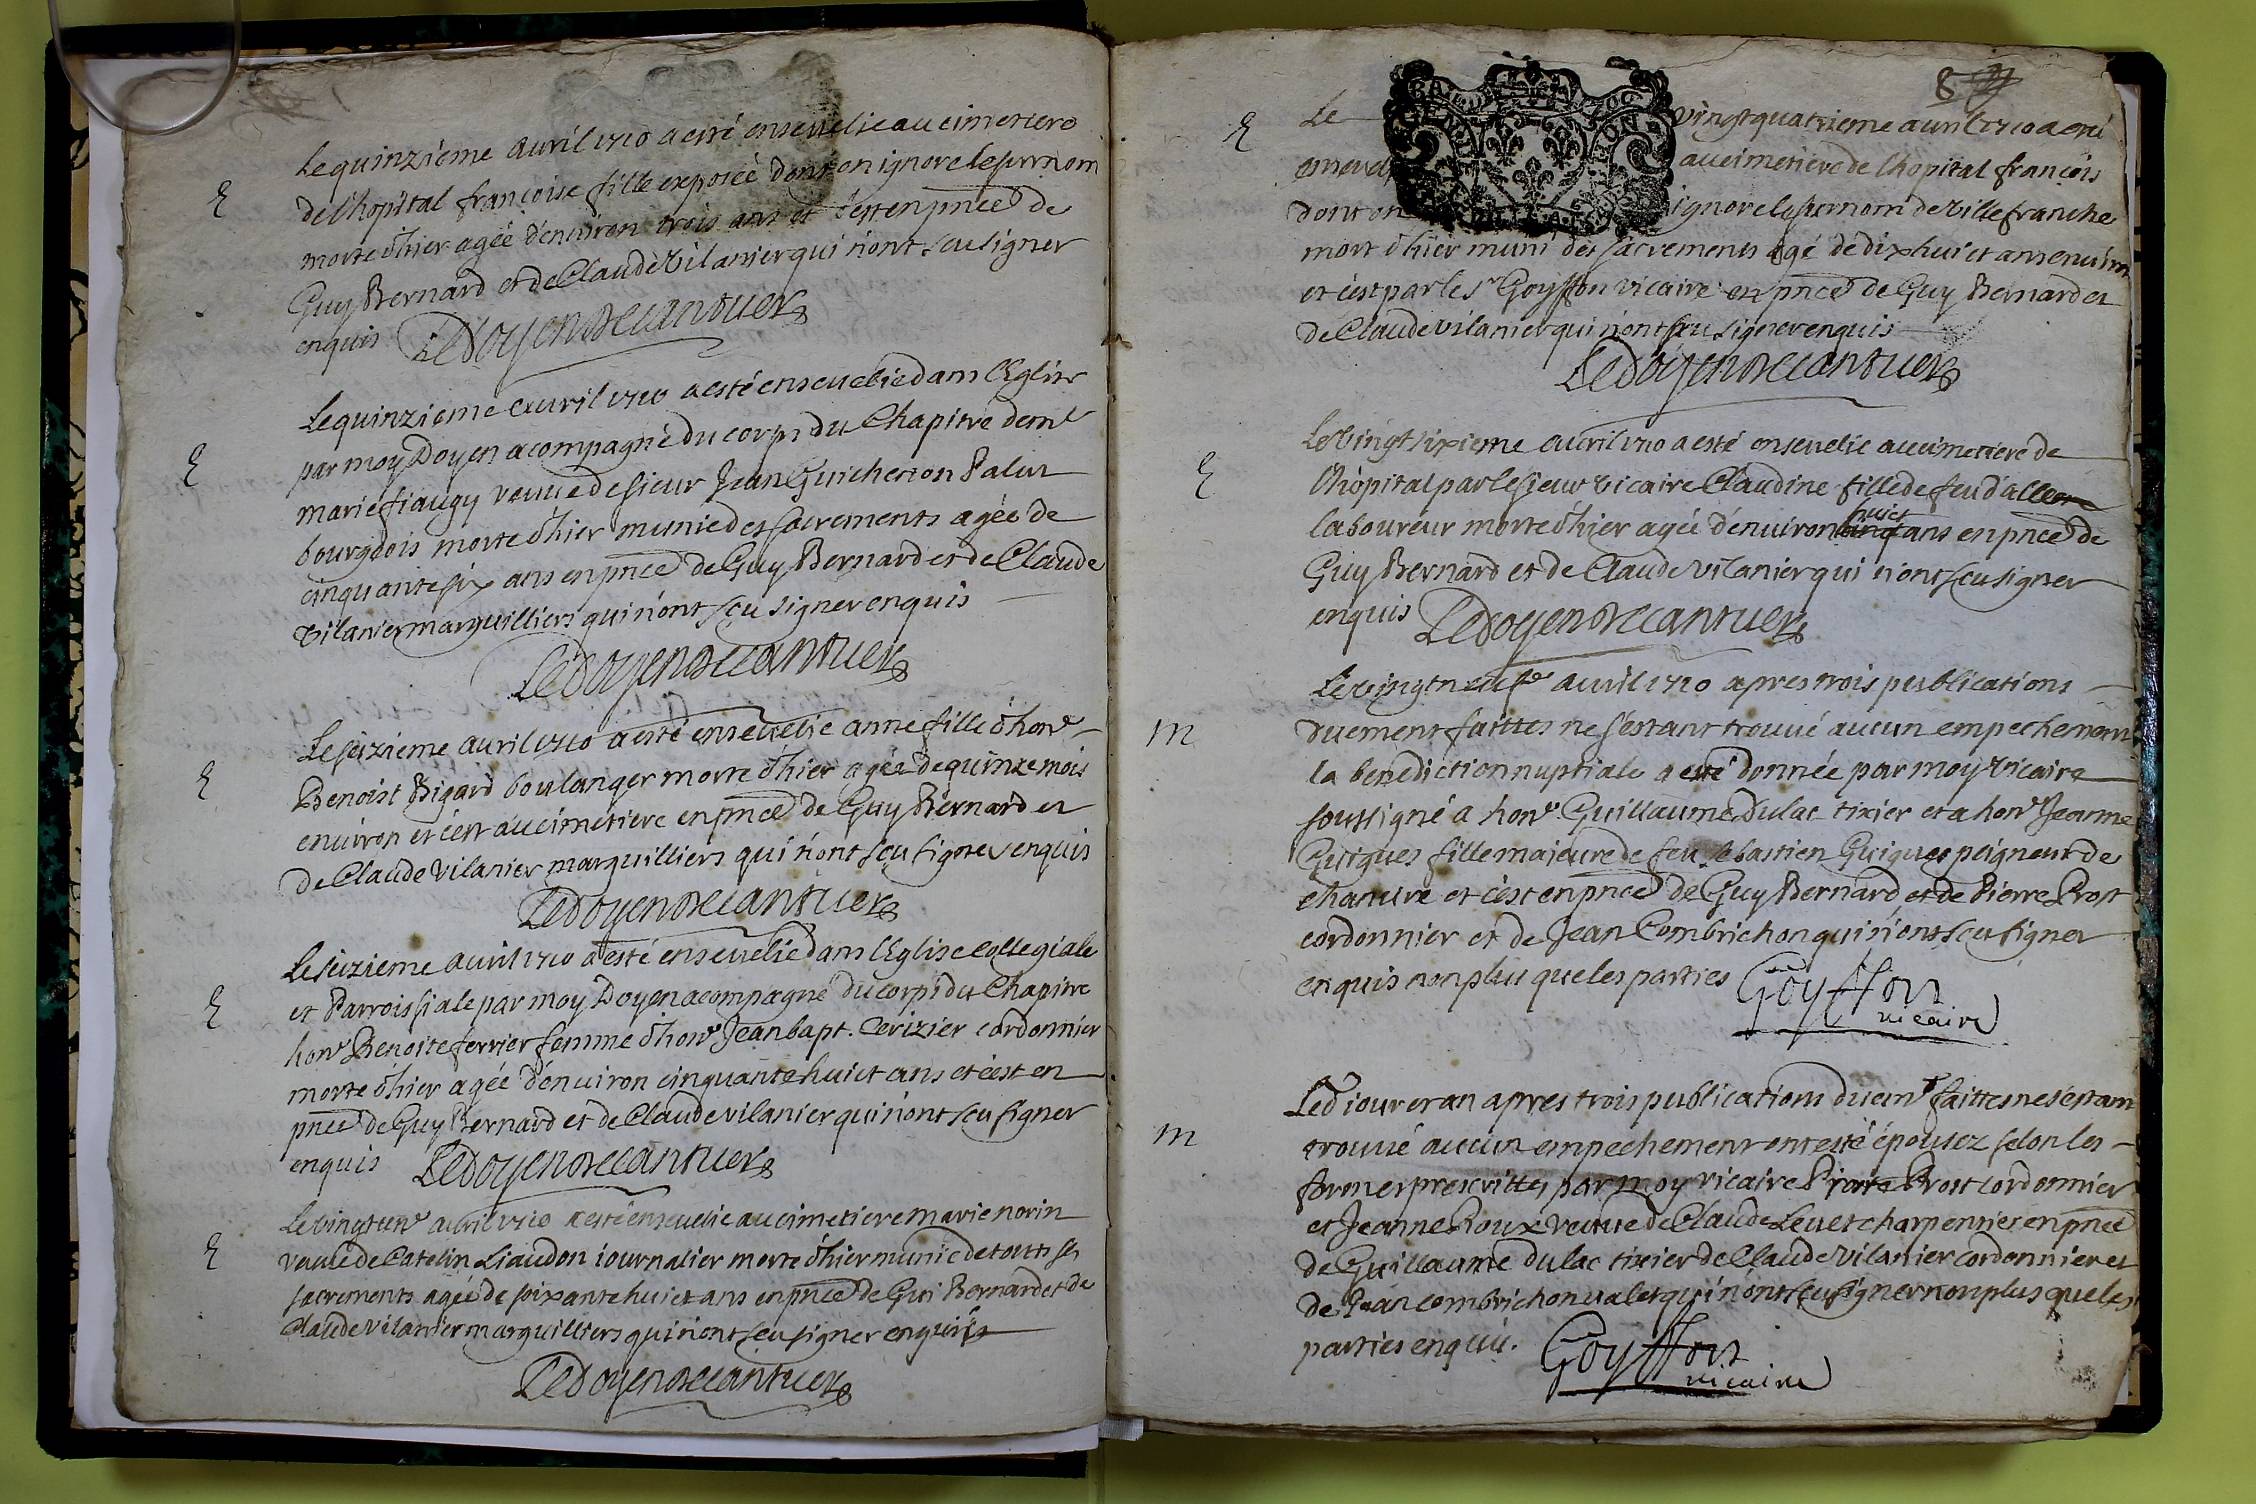 Le quinzieme auril 1710 a esté enseuelie au cimetiere
E
de l'hopital françoise fille exposée dont on ignore le surnom
morte d'hier agée d'enuiron trois ans et c'est en pnce de
Guy Bernard et de Claude Vilanier qui n'ont sceu signer
enquis LeDoyen Decantuer
Le quinzieme auril 1710 a esté enseuelie dans l'Eglise
E
par moy Doyen acompagné du corps du Chapitre demlle
marie fiaugy veuue de sieur Jean Guicheron Palut
bourgeois morte d'hier munie des sacrements agée de
cinquante six ans en pnce de Guy Bernard et de Claude
Vilanier marguilliers qui n'ont sceu signer enquis
LeDoyen Decantuer
Le seizieme auril 1710 a esté enseuelie anne fille d'hone
E
Benoist Bigard boulanger morte d'hier agée de quinze mois
enuiron et c'est au cimetiere en pnce de Guy Bernard et
de Claude Vilanier marguilliers qui n'ont sceu signer enquis
LeDoyen Decantuer
Le seizieme auril 1710 a esté enseuelie dans l'Eglise collegiale
E
et Parroissiale par moy Doyen acompagné du corps du Chapitre
hone Benoite ferrier femme d'hone Jean bapt. Cerizier cordonnier
morte d'hier agée d'enuiron cinquante huict ans et c'est en
pnce de Guy Bernard et de Claude vilanier qui n'ont sceu signer
enquis LeDoyen Decantuer
Le vingt une auril 1710 a esté enseuelie au cimetiere marie norin
E
veuue de Catelin Liaudon iournalier morte d'hier munie de touts ses
sacrements agée de soixante huict ans en pnce de Gui Bernard et de
Claude Vilanier marguilliers qui n'ont sceu signer enquis
LeDoyen Decantuer
8
Le vingt quatrieme auril 1710 a esté
E
enseueli au cimetiere de l'hopital françois
dont on ignore le surnom de Villefranche
mort d'hier muni des sacrements agé de dix huict ans enuiron
et c'est par le Sr Goyffon vicaire en pnce de Guy Bernard et
de Claude vilanier qui n'ont sceu signer enquis
LeDoyen Decantuer
Le vingt sixieme auril 1710 a esté enseuelie au cimetiere de
E
l'hopital par le sieur vicaire Claudine fille de feu d'allere
laboureur morte d'hier agée d'enuiron cinq huict ans en pnce de
Guy Bernard et de Claude vilanier qui n'ont sceu signer
enquis LeDoyen Decantuer
Le vingt neufe auril 1710 apres trois publications
M
duement faittes ne s'estant trouué aucun empechement
la benediction nuptiale a esté donnée par moy Vicaire
soussigné a hone Guillaume Dulac tixier et a hone Jeanne
Guigues fille majeure de feu Sebastien Guigues peigneur de
chanure et c'est en pnce de Guy Bernard et de Pierre Prost
cordonnier et de Jean Combrichon qui n'ont sceu signer
enquis non plus que les parties Goyffon
vicaire
Led iour et an apres trois publications duemt faittes ne s'estant
M
trouué aucun empechement ont esté épousez selon les
formes prescrittes par moy vicaire Pierre Prost cordonnier
et Jeanne Roux veuue de Claude Leuet charpentier en pnce
de Guillaume dulac tixier de Claude Vilanier cordonnier et
de Jean combrichon valet qui n'ont sceu signer non plus que les
parties enquis. Goyffon
vicaire